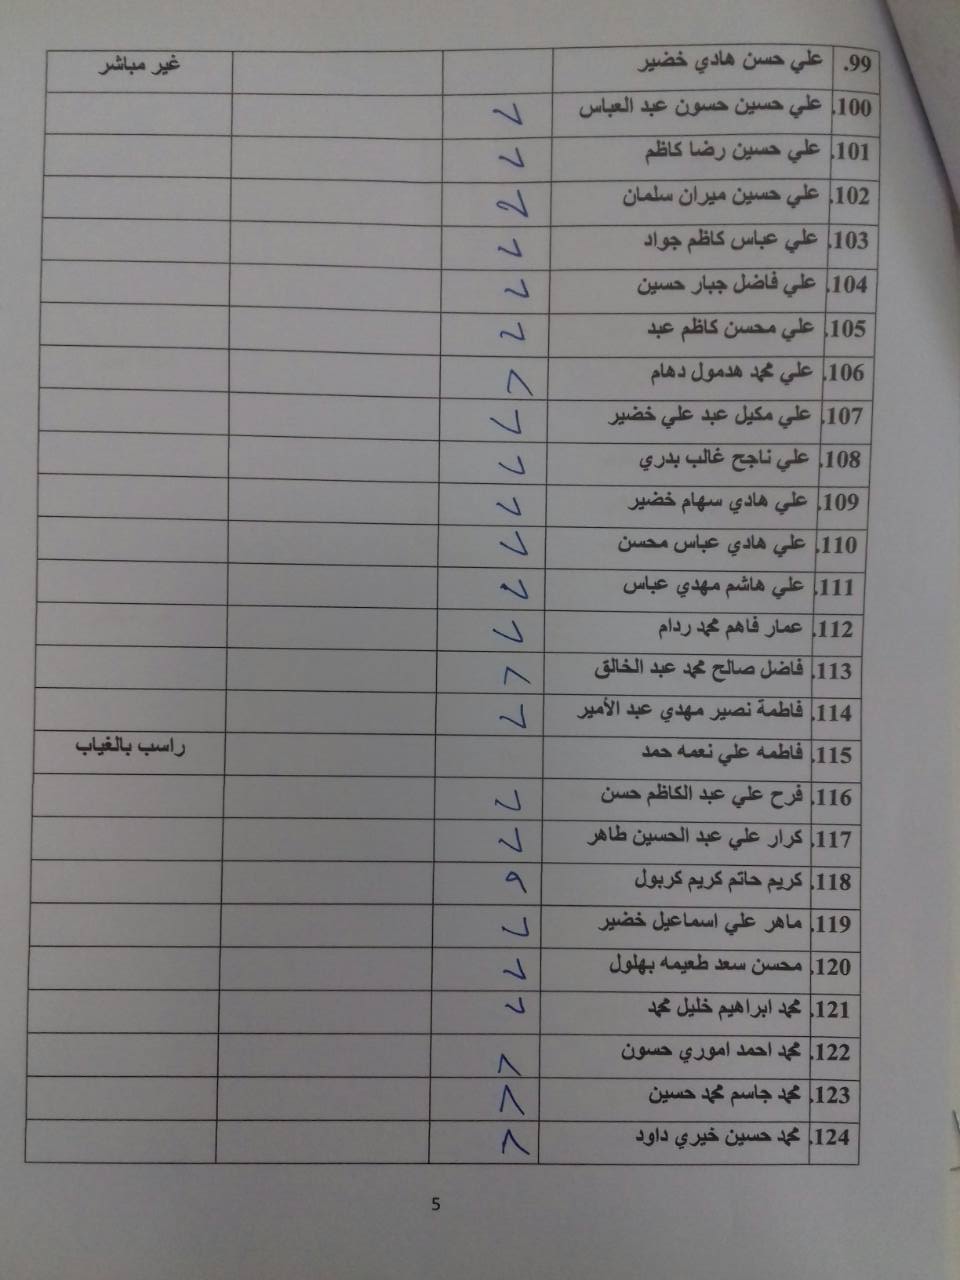 99. علي حسن هادي خضير غير مباشر
100. علي حسين حسون عبد العباس
101. علي حسين رضا كاظم
102. علي حسين ميران سلمان
103. علي عباس كاظم جواد
104. علي فاضل جبار حسين
105. علي محسن كاظم عبد
106. علي محمد هدمول دهام
107. علي مكيل عبد علي خضير
108. علي ناجح غالب بدري
109. علي هادي سهام خضير
110. علي هادي عباس محسن
111. علي هاشم مهدي عباس
112. عمار فاهم محمد ردام
113. فاضل صالح محمد عبد الخالق
114. فاطمة نصير مهدي عبد الأمير
115. فاطمه علي نعمه حمد راسب بالغياب
116. فرح علي عبد الكاظم حسن
117. كرار علي عبد الحسين طاهر
118. كريم حاتم كريم كربول ٩
119. ماهر علي اسماعيل خضير
120. محسن سعد طعيمه بهلول
121. محمد ابراهيم خليل محمد
122. محمد احمد اموري حسون
123. محمد جاسم محمد حسين
124. محمد حسين خيري داود
5